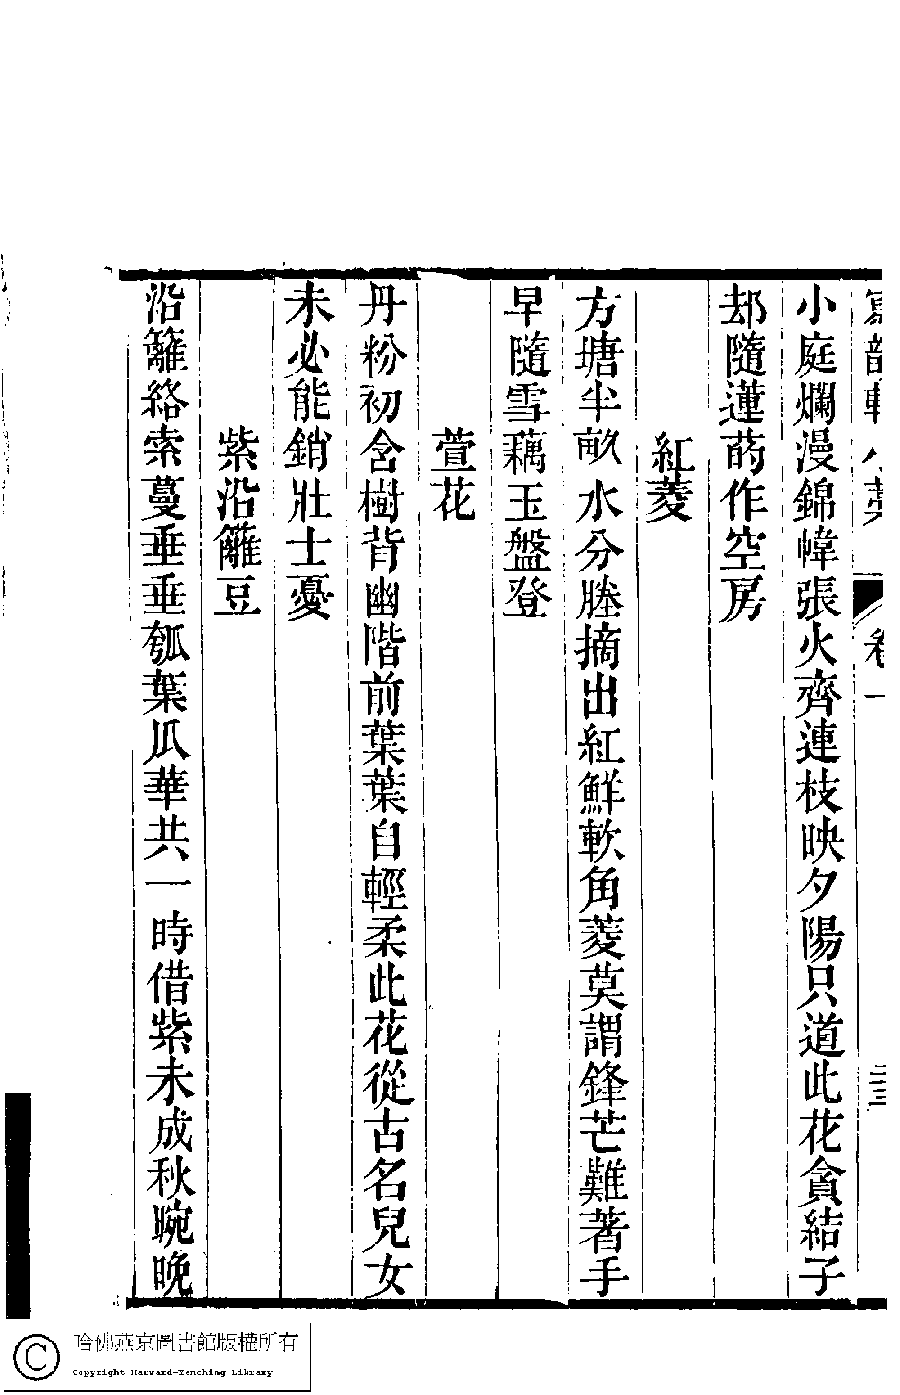 寫韻軒小藁 卷一 二三
小庭爛漫錦幛張火齊連枝映夕陽只道此花貪結子
却隨蓮菂作空房
紅菱
方塘半畝水分塍摘出紅鮮軟角菱莫謂鋒芒難著手
早隨雪藕玉盤登
萱花
丹粉初含樹背幽階前葉葉自輕柔此花從古名兒女
未必能銷壯士憂
紫沿籬豆
沿籬絡索蔓垂垂瓠葉瓜華共一時借紫未成秋晼晚
哈佛燕京圖書館版權所有
Copyright Harvard-Yenching Library